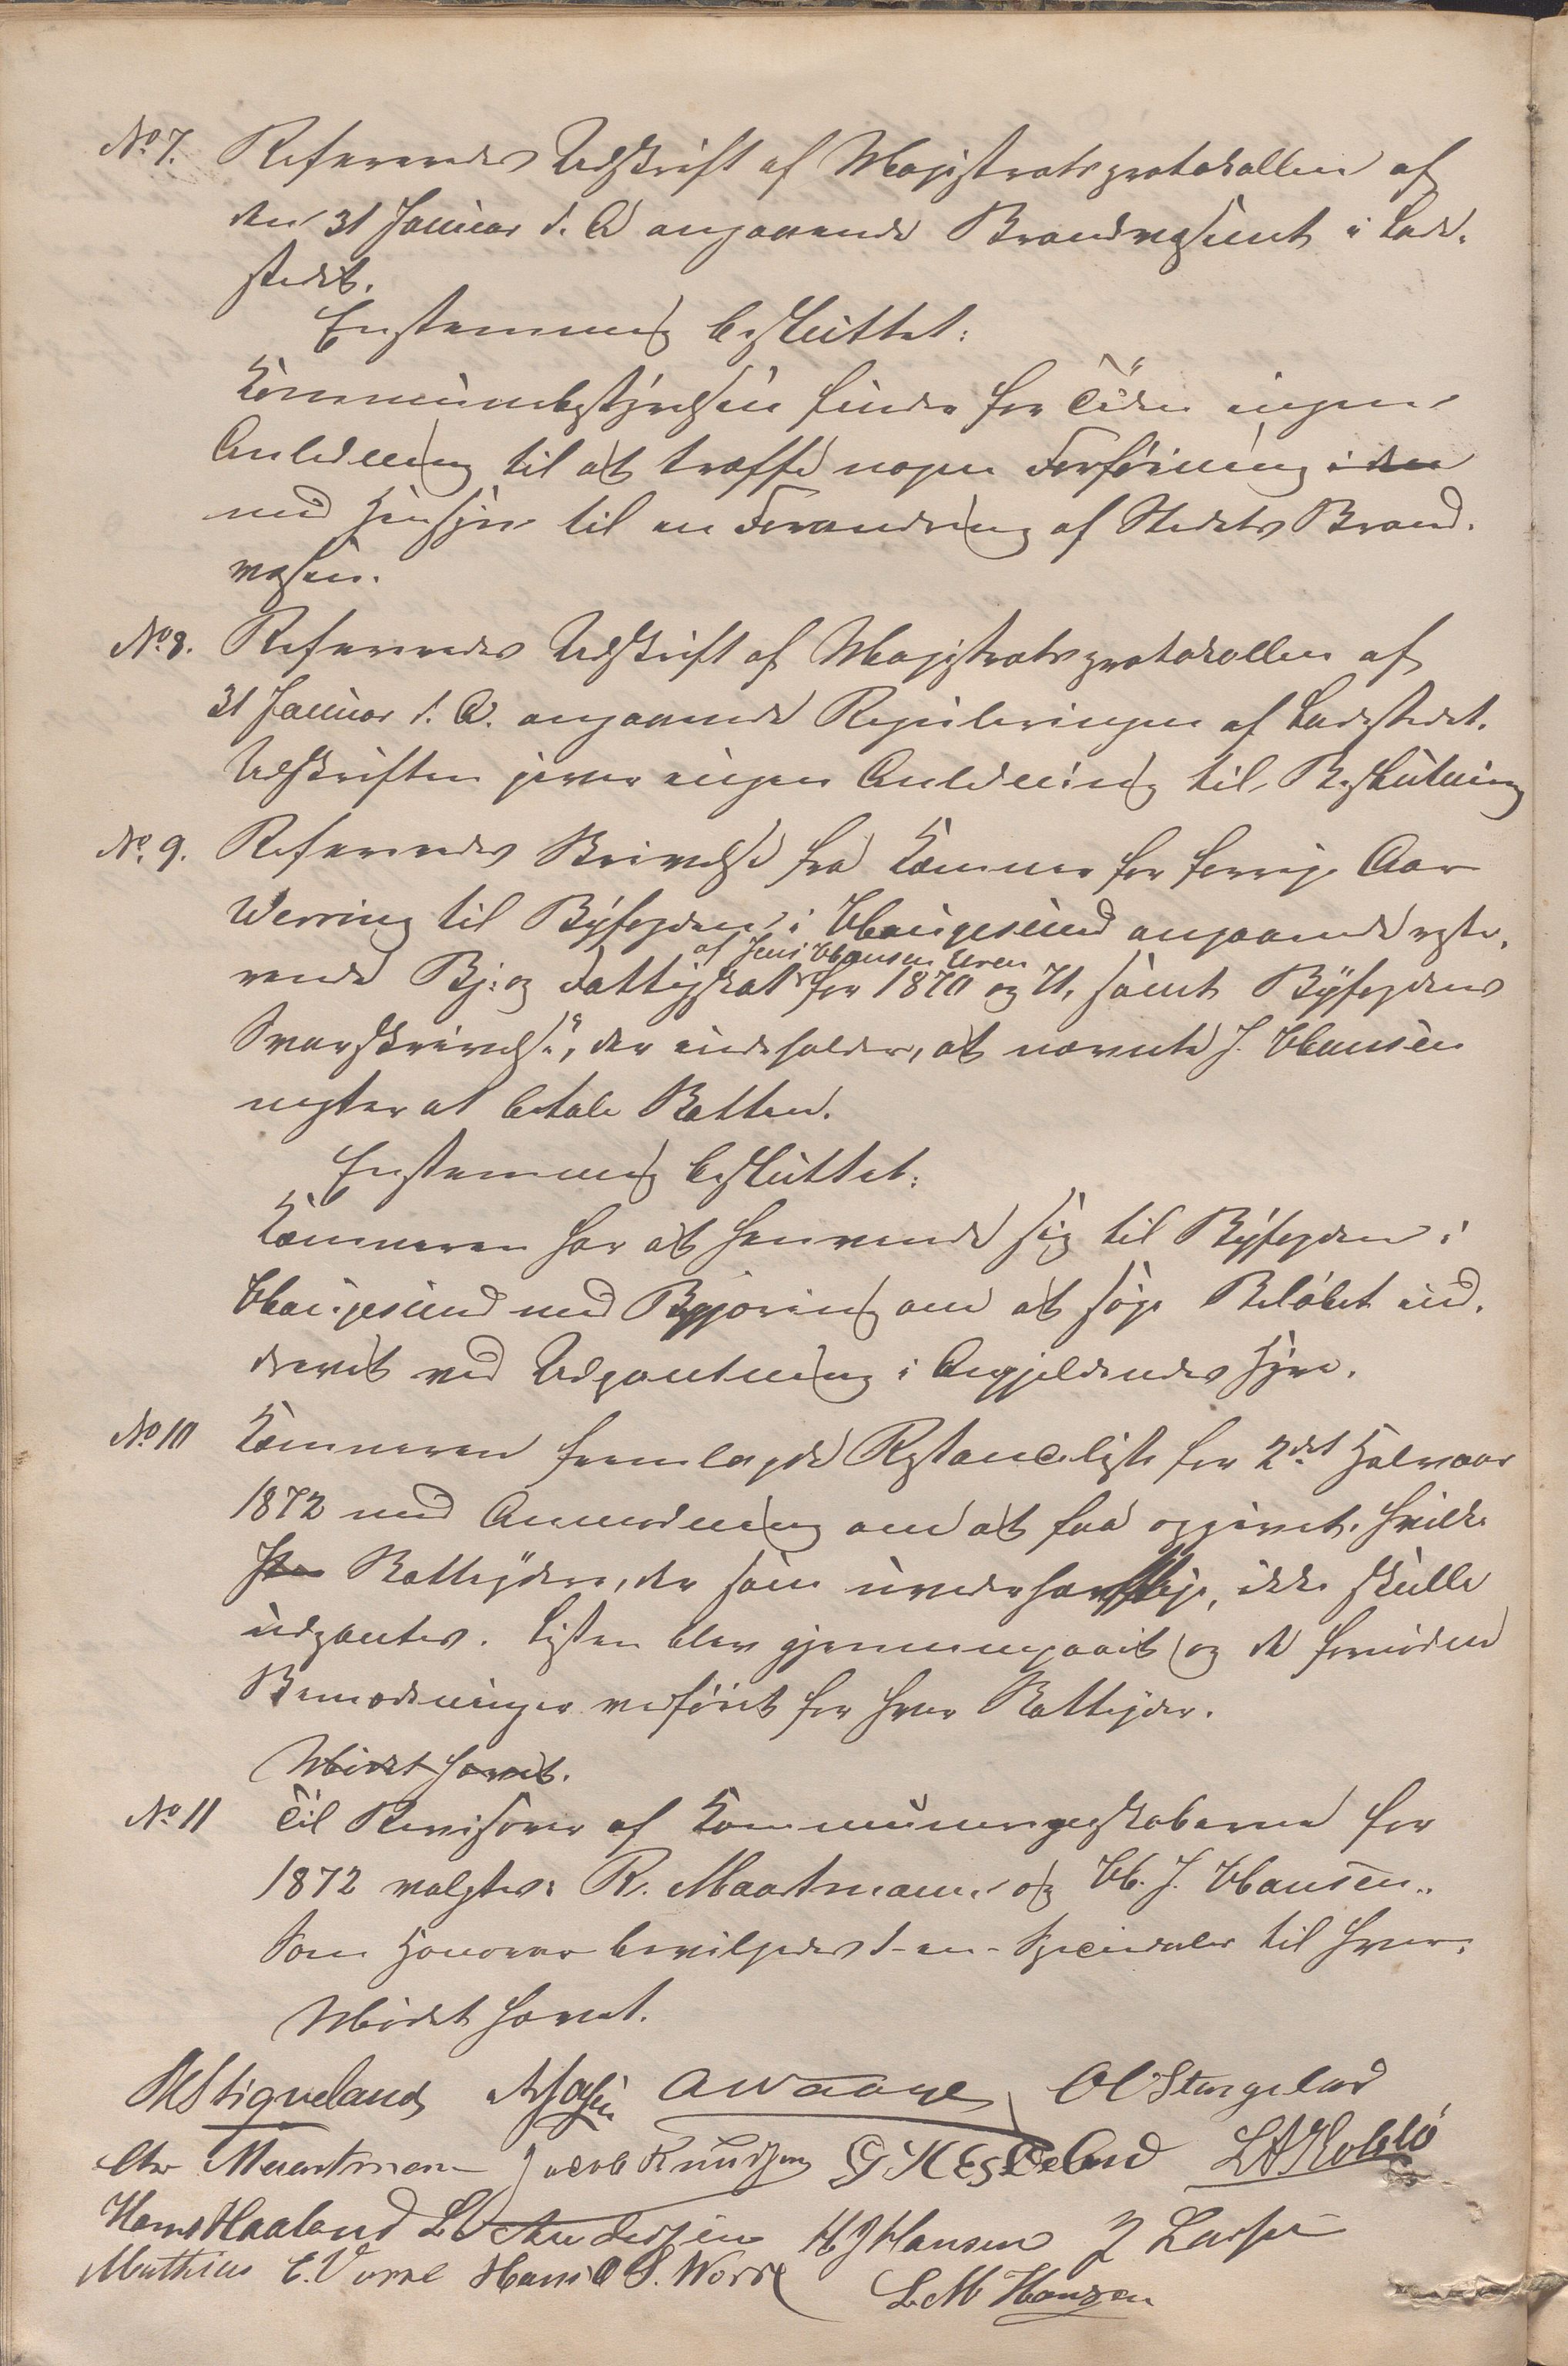 No 7. Refereredes Udskrift af Magistratsprotokollen af
den 31 Januar d. A angaaende Brandvæsenet i Lade-
stedet.
Enstemmig besluttet:
Kommunebestyrelsen finder for Tiden ingen
Anledning til at træffe nogen Forføining i den
med Hensyn til en Forandring af Stedets Brand-
væsen.
No 8. Refereredes Udskrift af Magistratsprotokollen af
31 Januar d. A. angaaende Reguleringen af Ladestedet.
Udskriften giver ingen Anledning til Beslutning
No 9. Refereredes Skrivelse fra Kæmner for forrige Aar
Werring til Byfogden i Haugesund angaaende reste-
af Jens Hansen
rende By- og Fattigskat for 1870 og 71, samt Byfogdens
Svarskrivelse, der indeholder, at nævnte J. Hansen
negter at betale Skatten.
Enstemmig besluttet:
Kæmneren har at henvende sig til Byfogden i
Haugesund med Begjæring om at søge Beløbet ind-
drevet ved Udpantning i Angjeldendes Hyre.
No 10 Kæmneren fremlagde Restanceliste for 2det Halvaar
1872 med Anmodning om at faa opgivet, hvilke
Skatteydere, der som uvederhæftige, ikke skulle
udpantes. Listen blev gjennemgaaet og de fornødne
Bemærkninger vedføiet for hver Skatteyder.
Mødet hævet.
No 11 Til Revisorer af Kommuneregnskaberne for
1872 valgtes: R. Maartmann og H. J. Hansen.
Som Honorar bevilgedes 1 - en - Speciedaler til hver.
Mødet hævet.
Stiqueland A Waage Ol Stangeland
Chr Maartmann Jacob Knudsen G K Eskeland
Hans Haaland L Andersen H J Hansen J Larsen
Mathias E. Vorre Hans O S. Worre L M Hansen